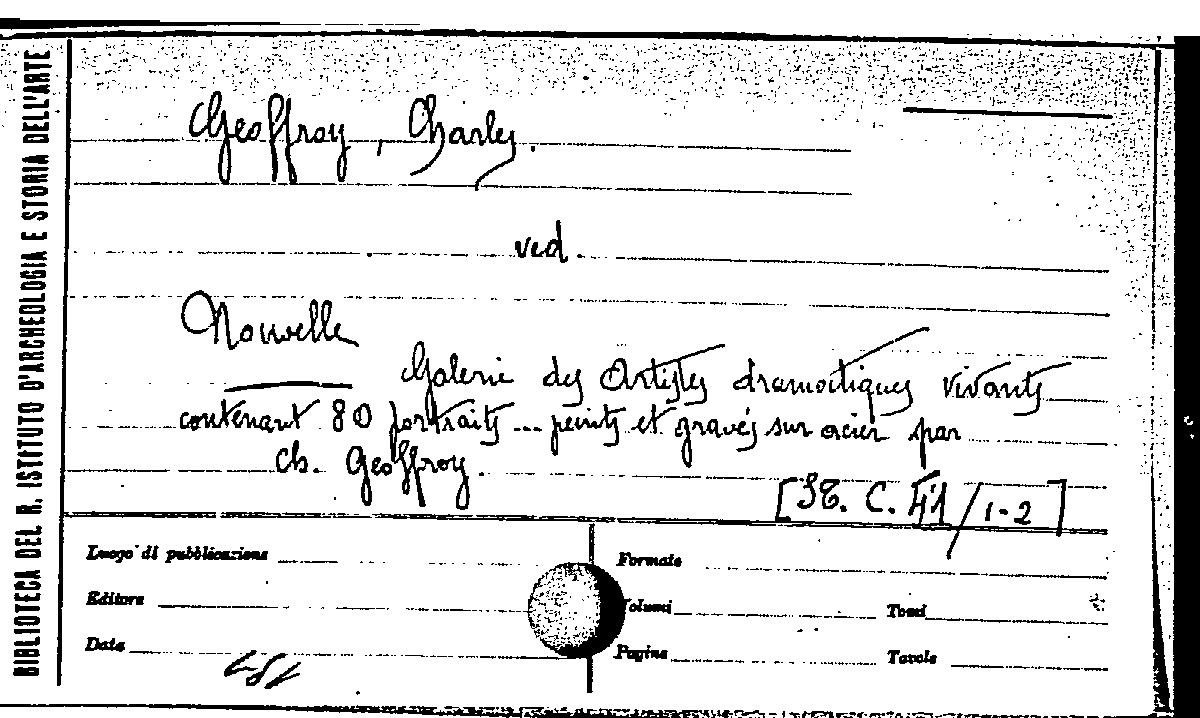 BIBLIOTECA DEL R. ISTITUTO D'ARCHEOLOGIA E STORIA DELL'ARTE
Geoffroy, Charles.
ved.
Nouvelle
Galerie des Artistes dramatiques vivants
contenant 80 portraits ... peints et gravés sur acier par
Ch. Geoffroy.
[St. C. 41/1-2]
Luogo di pubblicazione
Formato
Editore
Volumi
Tomi
Data
Pagine
Tavole